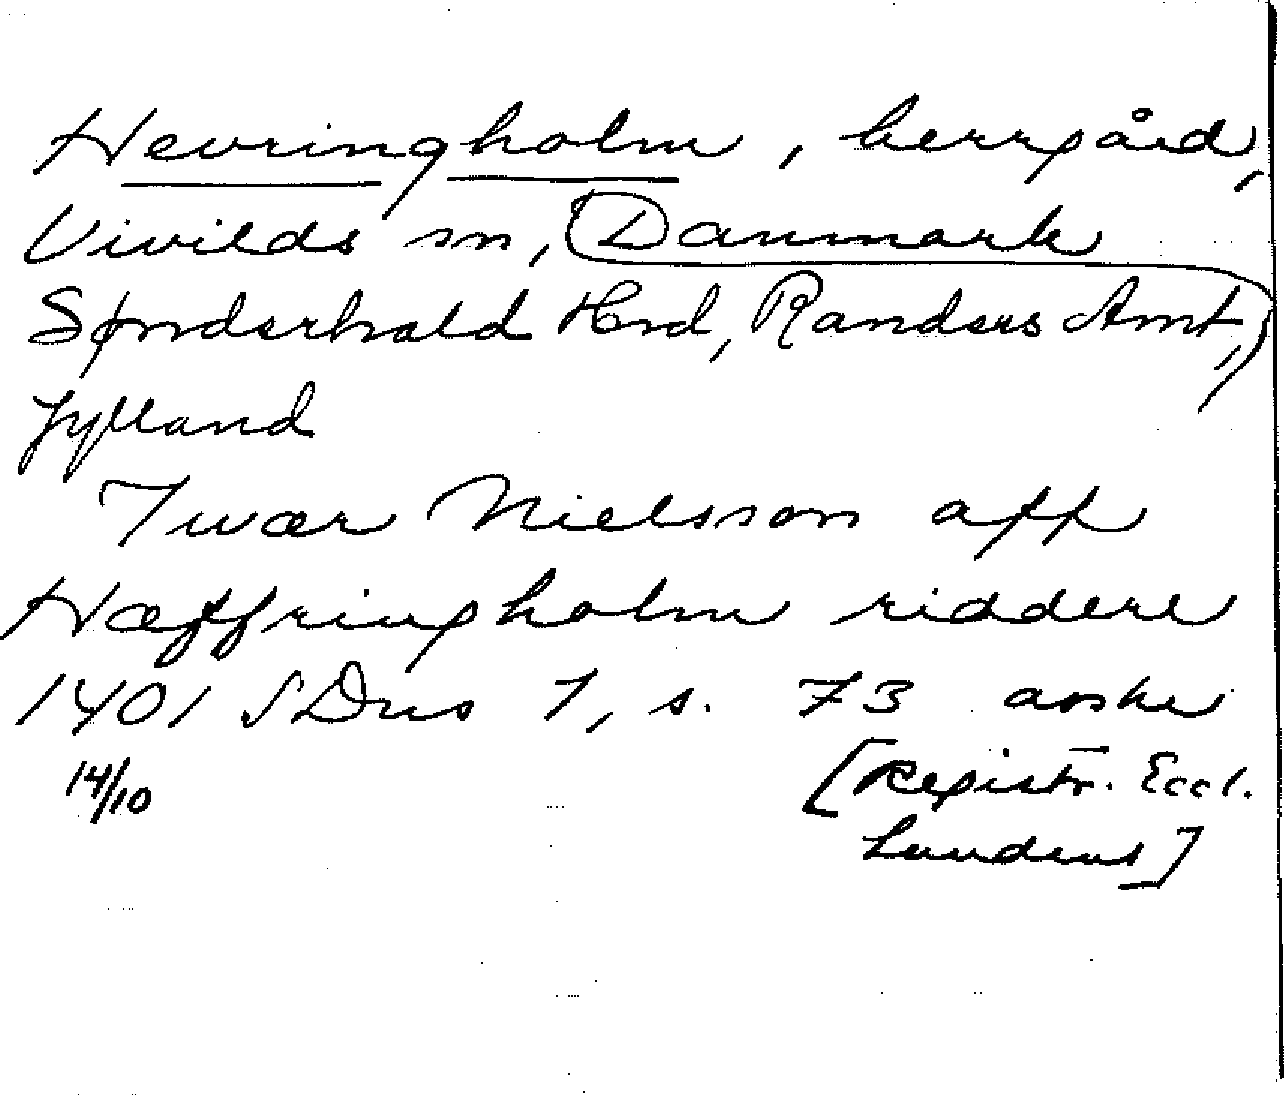 Hevringholm, herrgård,
Vivilds sn, Danmark
Sønderhald Hrd, Randers Amt,
Jylland
Iwær Nielsson aff
Hæffringholm riddere
1401 SDns 1, s. 73 avskr
14/10 [Registr. Eccl.
Lundens]